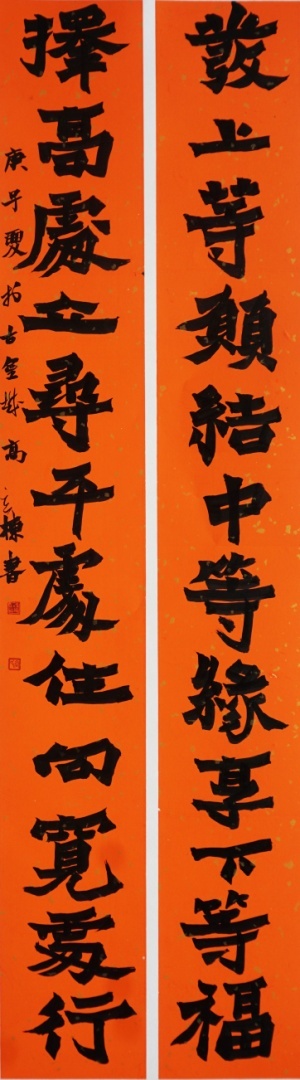 發上等願結中等緣享下等福
擇高處立尋平處住向寬處行
庚子夏於古金城高玉棟書